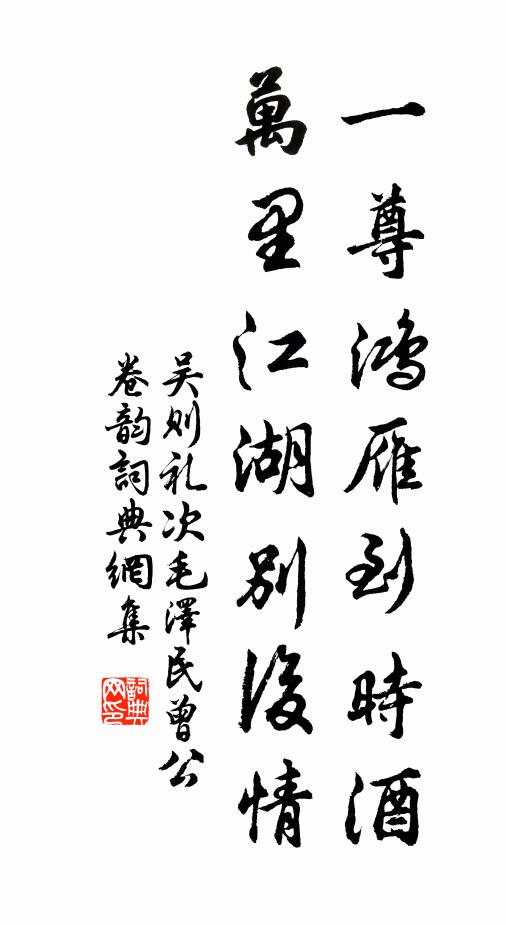 一尊鴻雁到時酒
萬里江湖別後情
吴则礼次毛澤民曾公
卷韵詞典網集
詞典网印